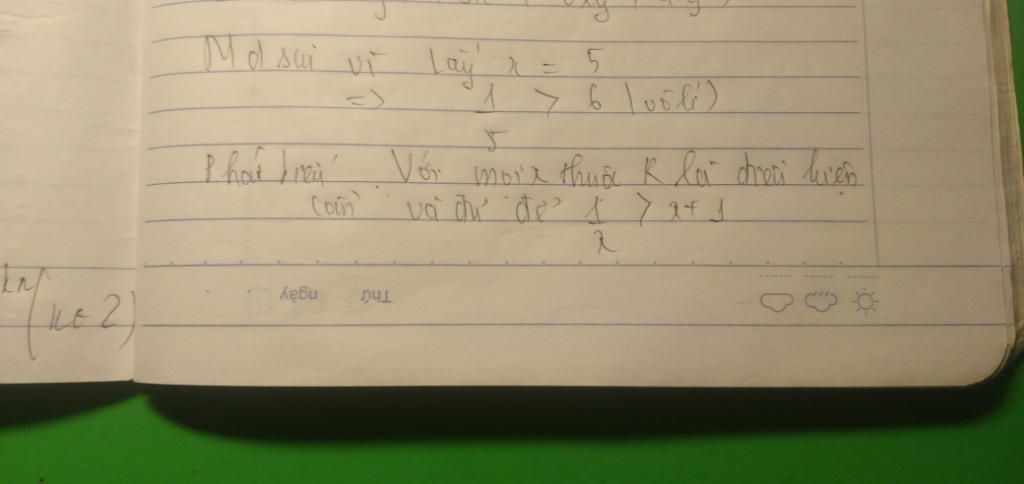 Mđ sai vì lấy x = 5
=> 1/5 > 6 (vô lí)
Phát biểu Với mọi x thuộc R là điều kiện
cần và đủ để 1/x > x + 1
Thứ ngày